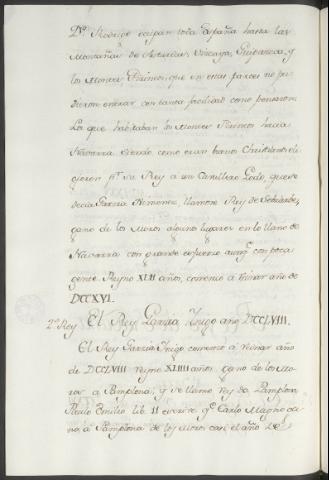 Dn. Rodrigo ocupan toda España hasta las
Montañas de Asturias, Vizcaya, Guipuzcoa, y
los Montes Pirineos, que en estas partes no pu-
dieron entrar con tanta facilidad como pensaron.
Los que habitaban los Montes Pirineos hacia
Navarra viendo como eran buenos Christianos eli-
gieron pr. su Rey a un Cavallero Godo, que se
decia Garcia Ximenez, llamose Rey de Sobrarbe,
gano de los Moros algunos lugares en lo llano de
Navarra con grande esfuerzo aunq. con poca
gente. Reyno XLII años, comenzo a reinar año de
DCCXVI.
2º Rey El Rey Garcia Iñigo año DCCLVIII.
El Rey Garcia Iñigo comenzó a reinar año
de DCCLVIII reyno XLIIII años, gano de los Mo-
ros a Pamplona, y se llamo rey de Pamplona,
Paulo Emilio lib. II escrive q. Carlo Magno ga-
no a Pamplona de los Moros casi el año de